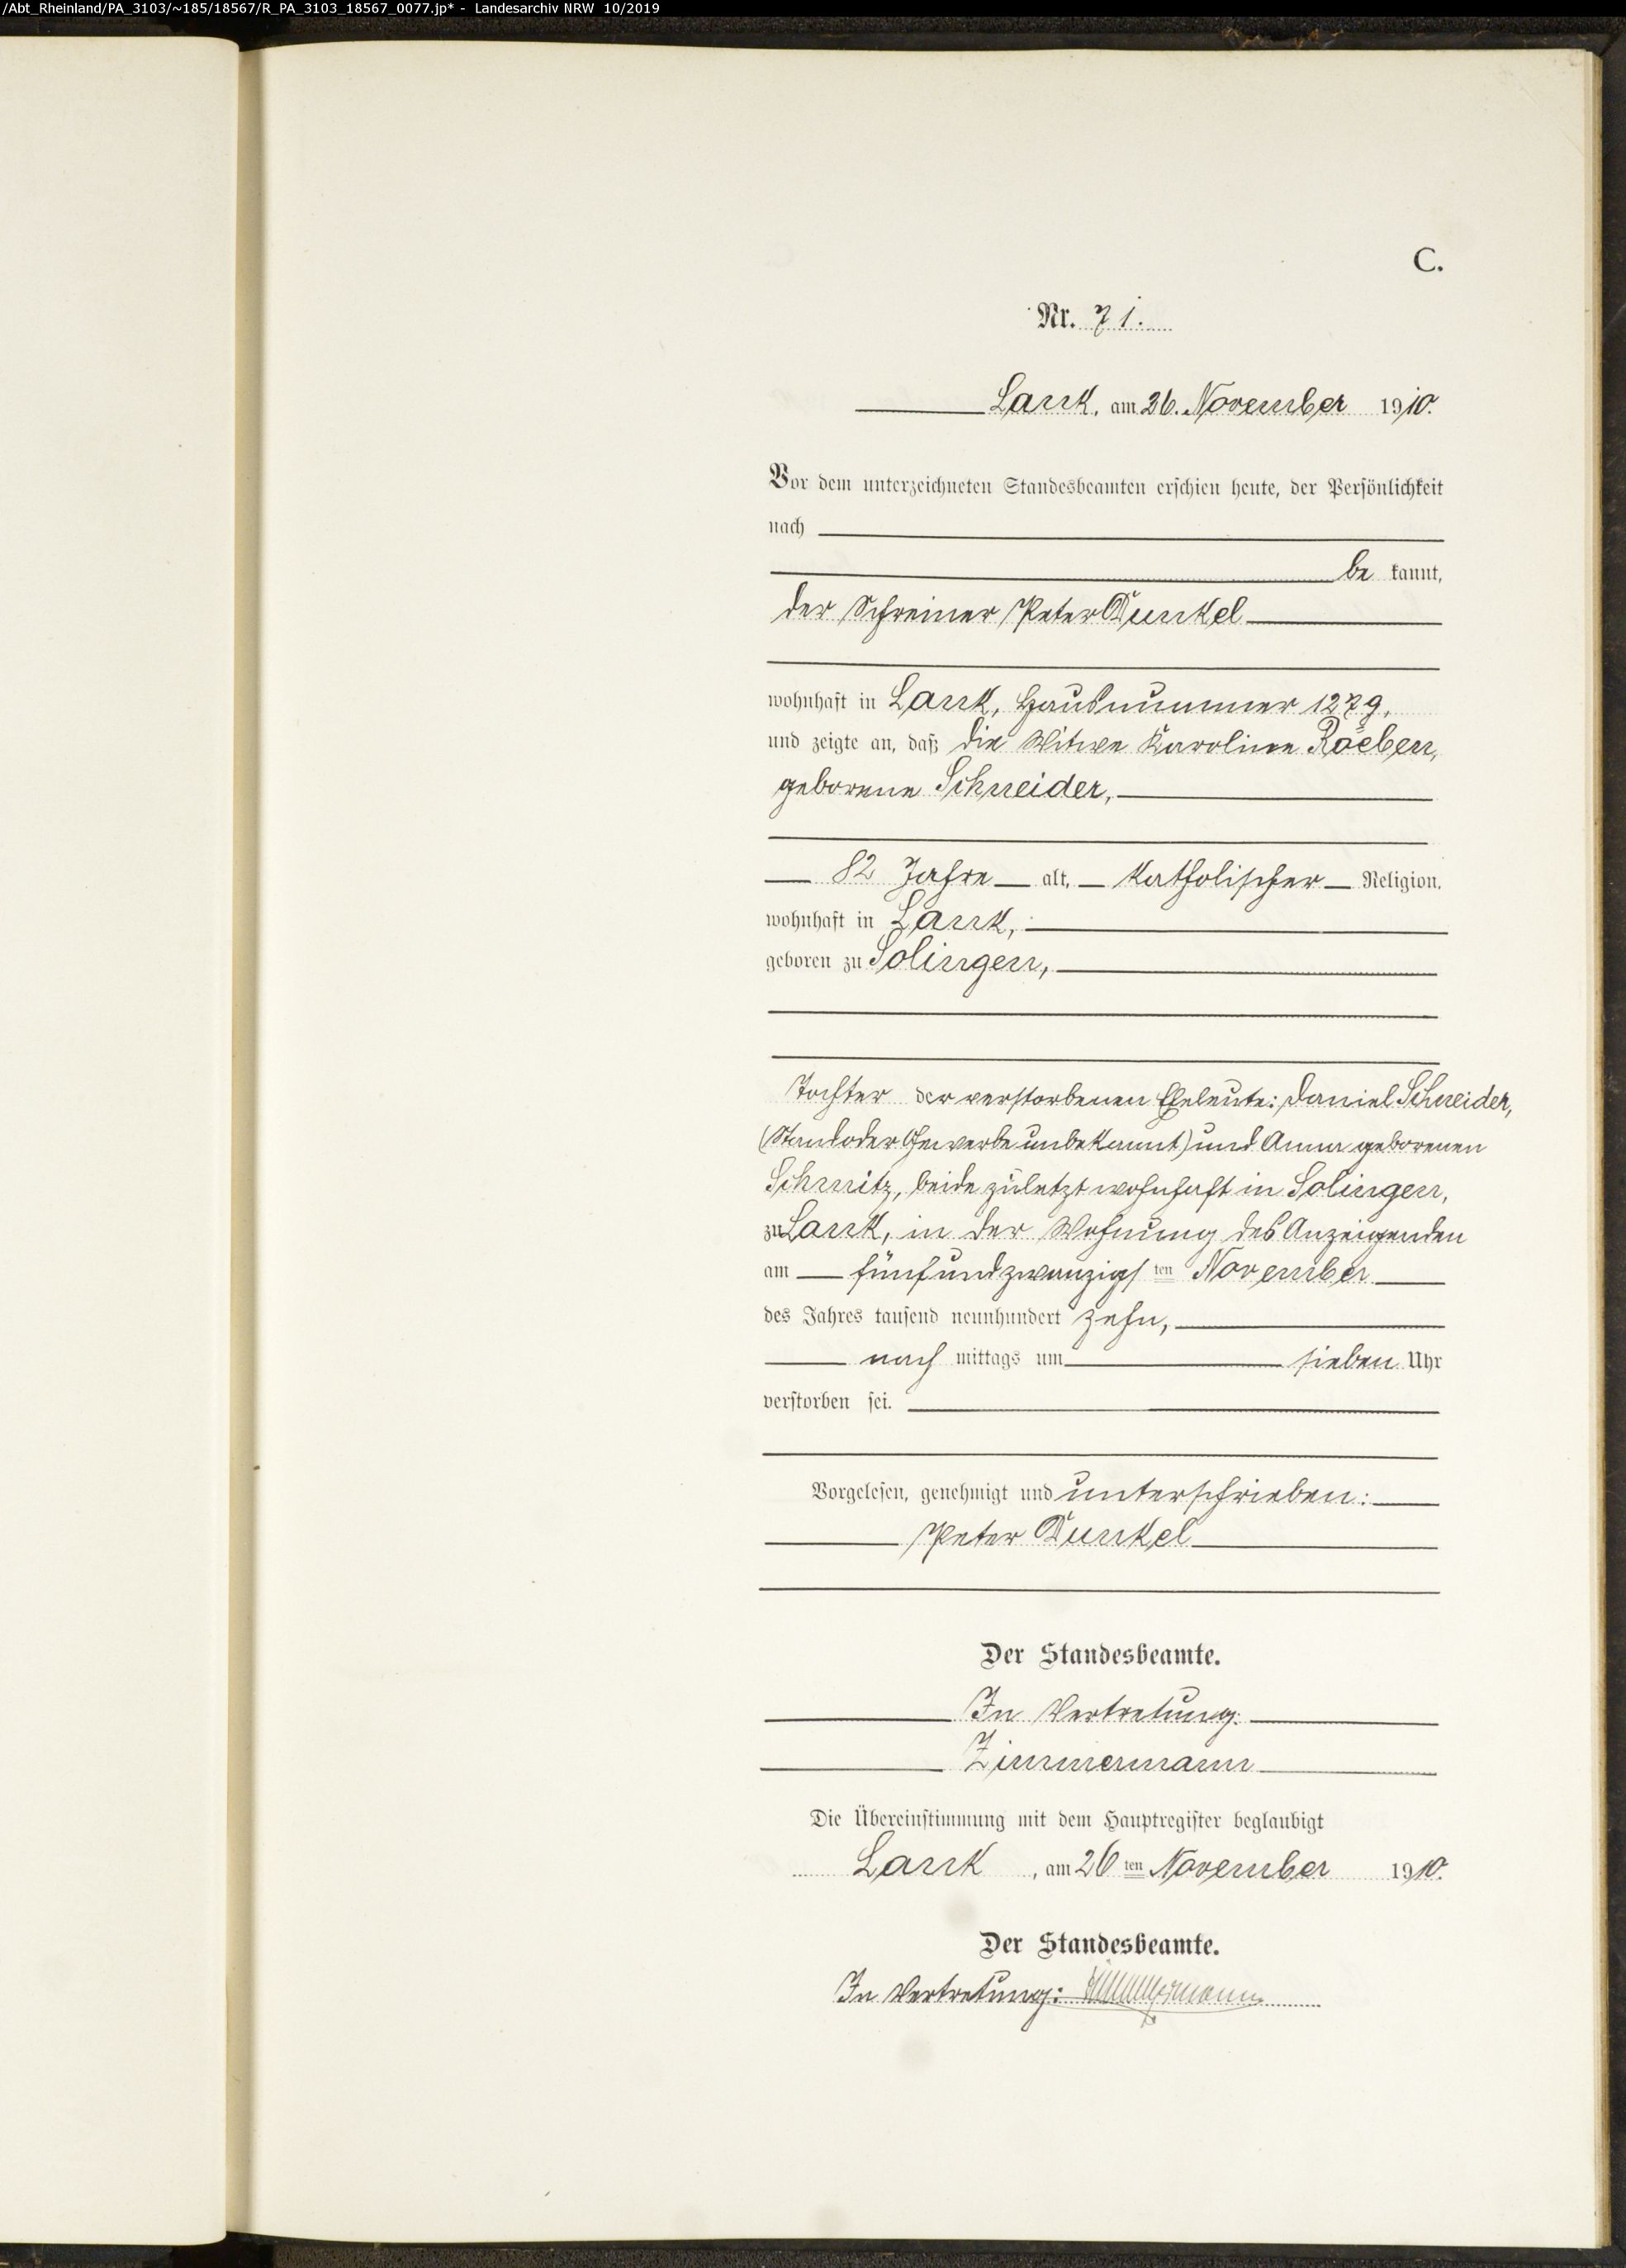 /Abt_Rheinland/PA_3103/~185/18567/R_PA_3103_18567_0077.jp* - Landesarchiv NRW 10/2019
C.
Nr. 71.
Lank, am 26. November 1910.
Vor dem unterzeichneten Standesbeamten erschien heute, der Persönlichkeit
nach
be kannt,
der Schreiner Peter Dunkel
wohnhaft in Lank, Hausnummer 127g,
und zeigte an, daß die Witwe Karoline Röeben,
geborene Schneider,
82 Jahre alt, katholischer Religion,
wohnhaft in Lank,
geboren zu Solingen,
Tochter der verstorbenen Eheleute: Daniel Schneider,
(Stand oder Gewerbe unbekannt) und Anna geborenen
Schmitz, beide zuletzt wohnhaft in Solingen,
zu Lank, in der Wohnung des Anzeigenden
am fünfundzwanzigsten November
des Jahres tausend neunhundert zehn,
nach mittags um sieben Uhr
verstorben sei.
Vorgelesen, genehmigt und unterschrieben:
Peter Dunkel
Der Standesbeamte.
In Vertretung:
Zimmermann
Die Übereinstimmung mit dem Hauptregister beglaubigt
Lank, am 26 ten November 1910.
Der Standesbeamte.
In Vertretung: Zimmermann